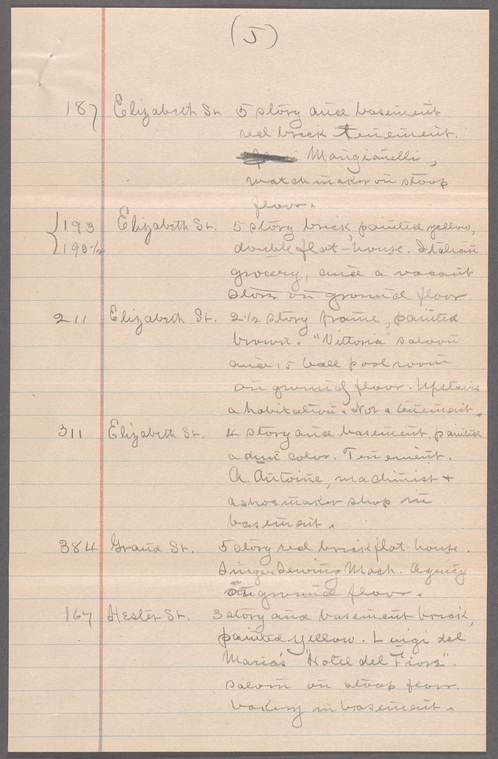 (5)
187 Elizabeth St. 5 story and basement
red brick tenement.
Mangianelli,
watchmaker on stoop
floor.
193 Elizabeth St. 5 story brick, painted yellow,
193½ double flat-house. Italian
grocery, and a vacant
store on ground floor
211 Elizabeth St. 2½ story frame, painted
brown. "Vittoria" saloon
and 15 ball pool room
on ground floor. Upstairs
a habitation. Not a tenement.
311 Elizabeth St. 4 story and basement, painted
a dun color. Tenement.
A. Antoine, machinist +
a shoemaker shop in
basement.
384 Grand St. 5 story red brick flat-house.
Singer Sewing Mach. Agency
on ground floor.
167 Hester St. 3 story and basement brick,
painted yellow. Luigi del
Maria's "Hotel del Fiore".
saloon on stoop floor.
bakery in basement.